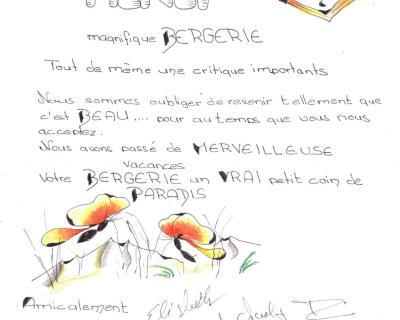 MERCI
magnifique BERGERIE
Tout de même une critique importants
Nous sommes oubliger de revenir tellement que
c'est BEAU .... pour autemps que vous nous
acceptez.
Nous avons passé de MERVEILLEUSE
vacances
Votre BERGERIE un VRAI petit coin de
PARADIS
Amicalement Elisabeth